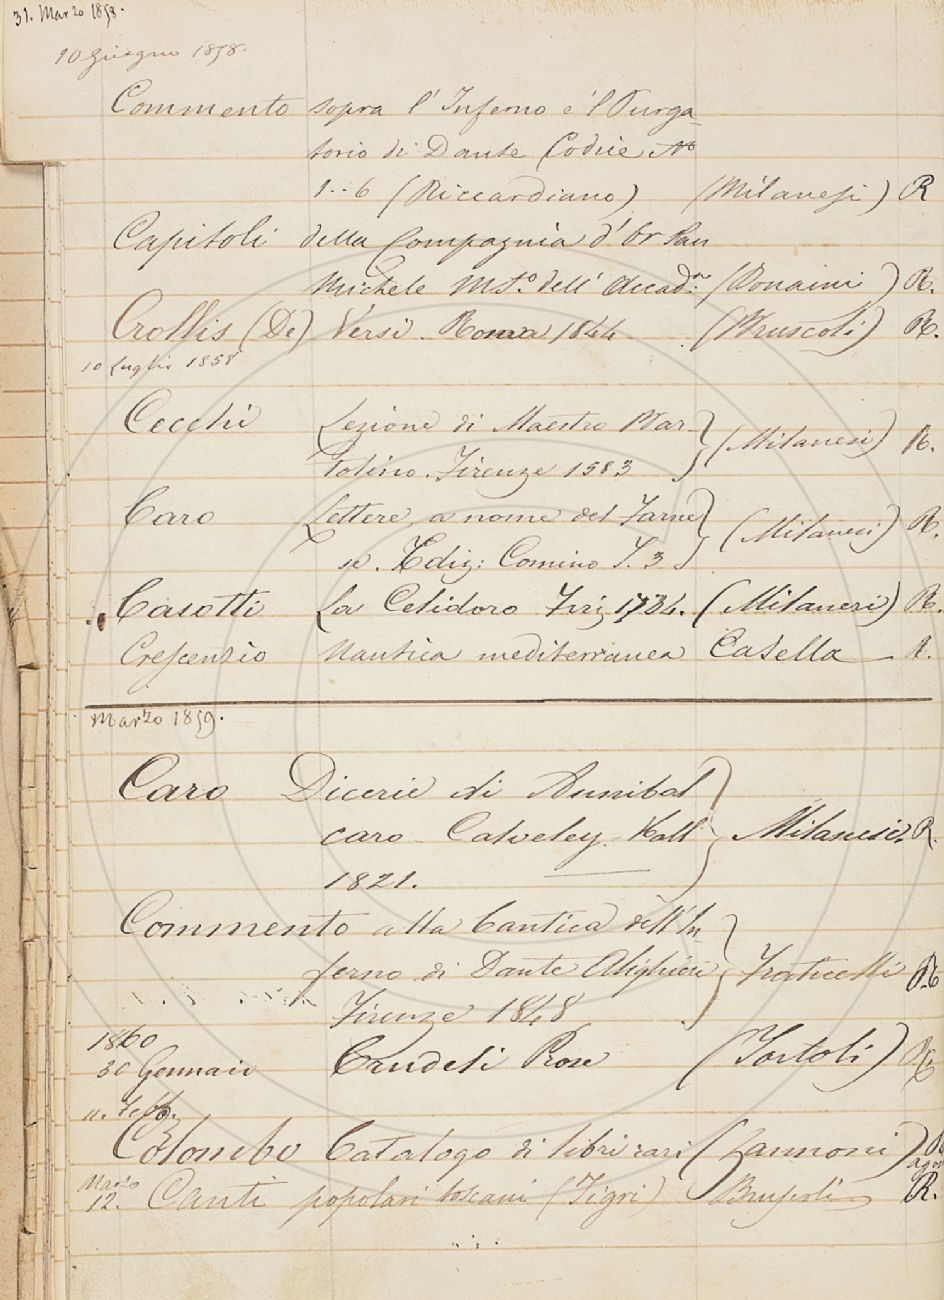 31. Marzo 1858.
10 Giugno 1858.
Commento sopra l'Inferno e 'l Purga_
torio di Dante Codice No
1..6 (Riccardiano) (Milanesi) R
Capitoli della Compagnia d'Or San
Michele MS.o dell' Accad: (Bonaini) R.
Crollis (De) Versi. Roma 1844 (Bruscoli) R.
10 Luglio 1858
Cecchi Lezione di Maestro Bar-
tolino. Firenze 1583 (Milanesi) R.
Caro Lettere a nome del Farne
se. Ediz: Comino T. 3 (Milanesi) R.
Casotti La Celidora Fir: 1734. (Milanesi) R.
Crescenzio Nautica mediterranea Casella R.
Marzo 1859.
Caro Dicerie di Annibal
caro Calveley Hall Milanesi. R.
1821.
Commento alla Cantica dell'In
ferno di Dante Alighieri Fraticelli R
Firenze 1848
1860
30 Gennaio Crudeli Rose (Tortoli) R
11. Febb.
Colombo Catalogo di libri rari (Zannoni) R
Marzo
12. Canti popolari toscani (Tigri) Bruscoli R.